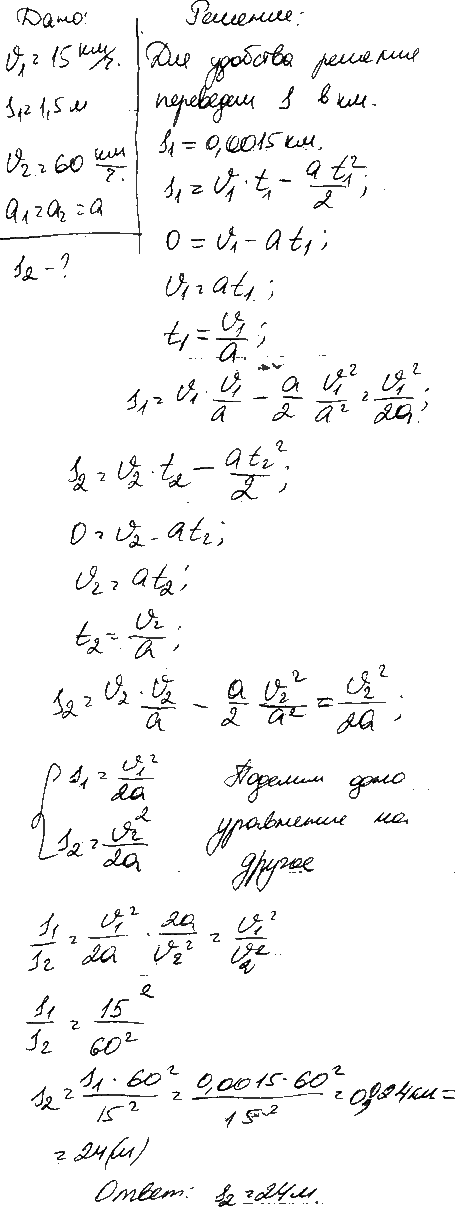 Дано:
υ₁ = 15 км/ч.
s₁ = 1,5 м
υ₂ = 60 км/ч.
a₁ = a₂ = a
s₂ - ?
Решение:
Для удобства решения
переведем s в км.
s₁ = 0,0015 км.
s₁ = υ₁ · t₁ − at₁²/2;
0 = υ₁ − at₁;
υ₁ = at₁;
t₁ = υ₁/a;
s₁ = υ₁ · υ₁/a − a/2 υ₁²/a² = υ₁²/2a;
s₂ = υ₂ · t₂ − at₂²/2;
0 = υ₂ − at₂;
υ₂ = at₂;
t₂ = υ₂/a;
s₂ = υ₂ · υ₂/a − a/2 υ₂²/a² = υ₂²/2a;
{ s₁ = υ₁²/2a
s₂ = υ₂²/2a
Поделим одно
уравнение на
другое
s₁/s₂ = υ₁²/2a · 2a/υ₂² = υ₁²/υ₂²
s₁/s₂ = 15²/60²
s₂ = s₁ · 60²/15² = 0,0015 · 60²/15² = 0,024 км =
= 24 (м)
Ответ: s₂ = 24 м.